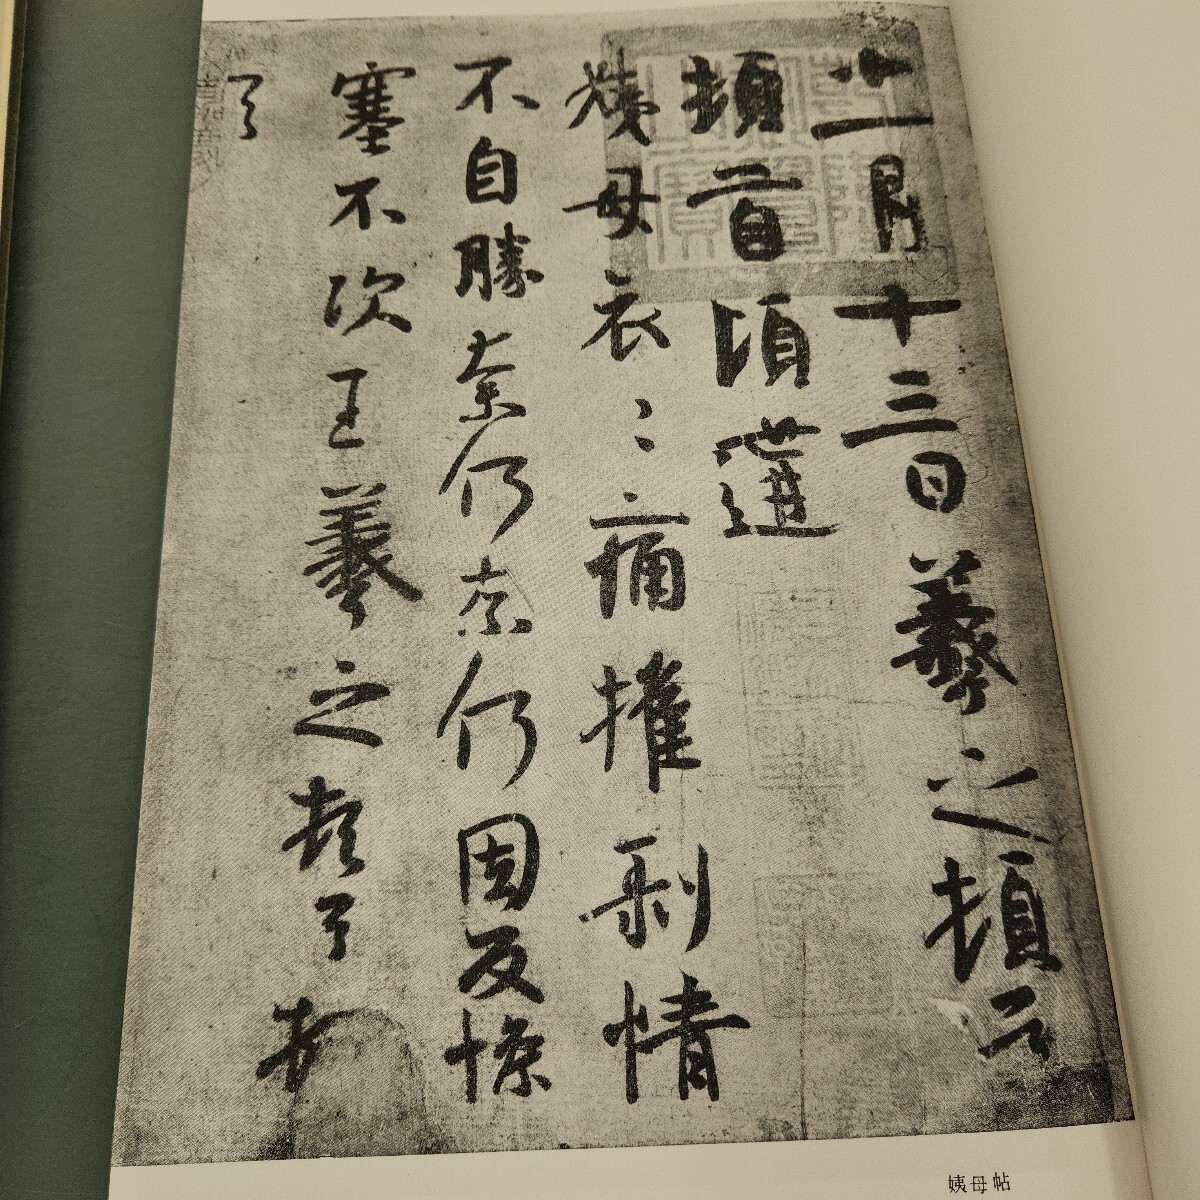 十一月十三日羲之頓首
頓首頃遘
姨母哀〻痛摧剝情
不自勝奈何奈何因反慘
塞不次王羲之頓首頓
首
乾隆御覽之寶
姨母帖